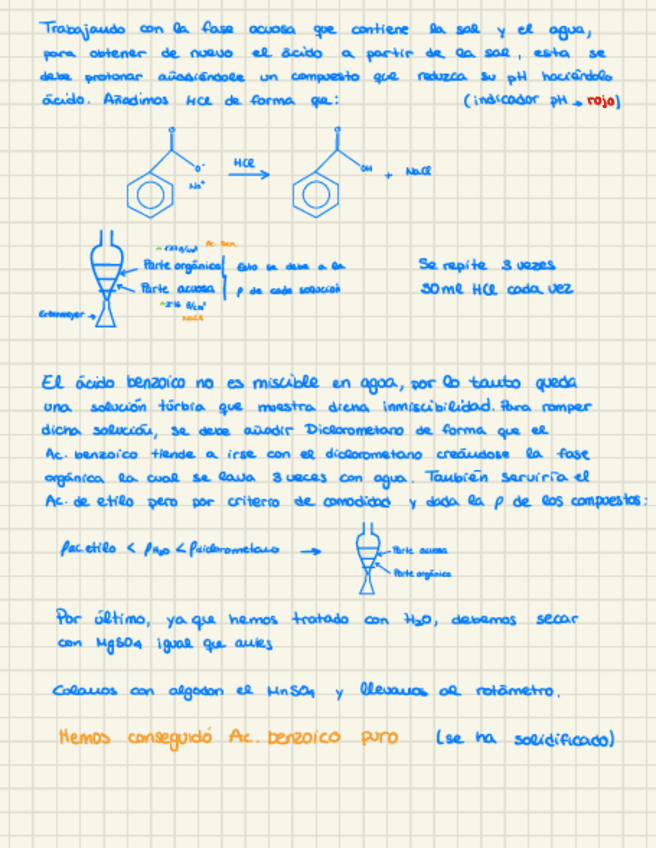 Trabajando con la fase acuosa que contiene la sal y el agua,
para obtener de nuevo el ácido a partir de la sal, esta se
debe protonar añadiéndole un compuesto que reduzca su pH haciéndolo
ácido. Añadimos HCl de forma que: (indicador pH → rojo)
O O
O⁻ Na⁺ HCl → OH + NaCl
Ac. Ben.
Parte orgánica Esto se debe a la
Parte acuosa ρ de cada solución
g/cm³
NaCl
Erlenmeyer →
Se repite 3 veces
30ml HCl cada vez
El ácido benzoico no es miscible en agua, por lo tanto queda
una solución túrbia que muestra dicha inmiscibilidad. Para romper
dicha solución, se debe añadir Diclorometano de forma que el
Ac. benzoico tiende a irse con el diclorometano creándose la fase
orgánica la cual se lava 3 veces con agua. También serviría el
Ac. de etilo pero por criterio de comodidad y dada la ρ de los compuestos:
ρac.etilo < ρH₂O < ρdiclorometano →
Parte acuosa
Parte orgánica
Por último, ya que hemos tratado con H₂O, debemos secar
con MgSO₄ igual que antes
Colamos con algodon el MnSO₄ y llevamos al rotámetro.
Hemos conseguido Ac. benzoico puro (se ha solidificado)